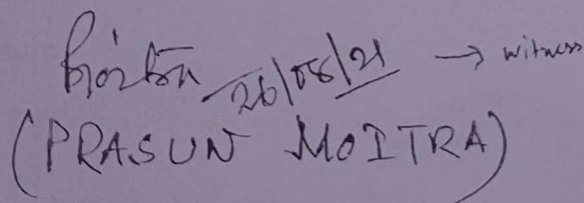 26/08/21 → witness
(PRASUN MOITRA)